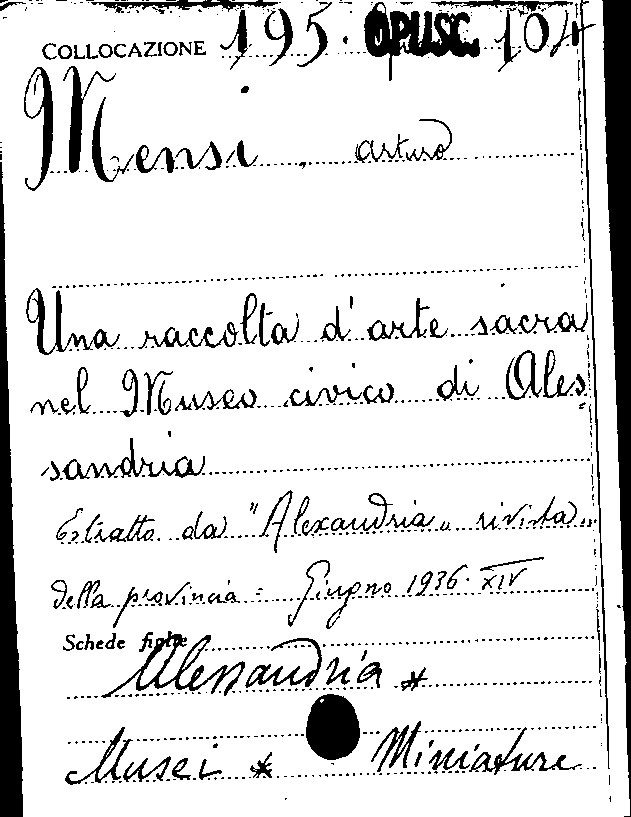 COLLOCAZIONE 195. OPUSC. 104
Mensi, Arturo
Una raccolta d'arte sacra
nel Museo civico di Ales=
sandria
Estratto da "Alexandria" rivista
della provincia = Giugno 1936. XIV
Schede figlie
Alessandria *
Musei * Miniature